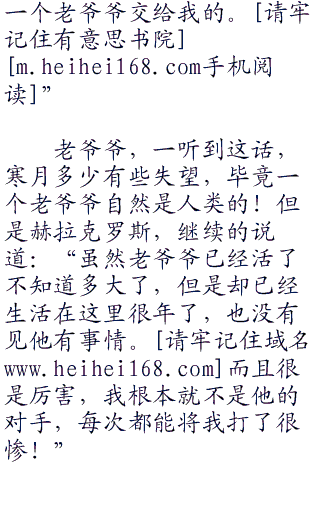 一个老爷爷交给我的。[请牢
记住有意思书院]
[m.heihei168.com手机阅
读]”
老爷爷，一听到这话，
寒月多少有些失望，毕竟一
个老爷爷自然是人类的！但
是赫拉克罗斯，继续的说
道：“虽然老爷爷已经活了
不知道多大了，但是却已经
生活在这里很年了，也没有
见他有事情。[请牢记住域名
www.heihei168.com]而且很
是厉害，我根本就不是他的
对手，每次都能将我打了很
惨！”